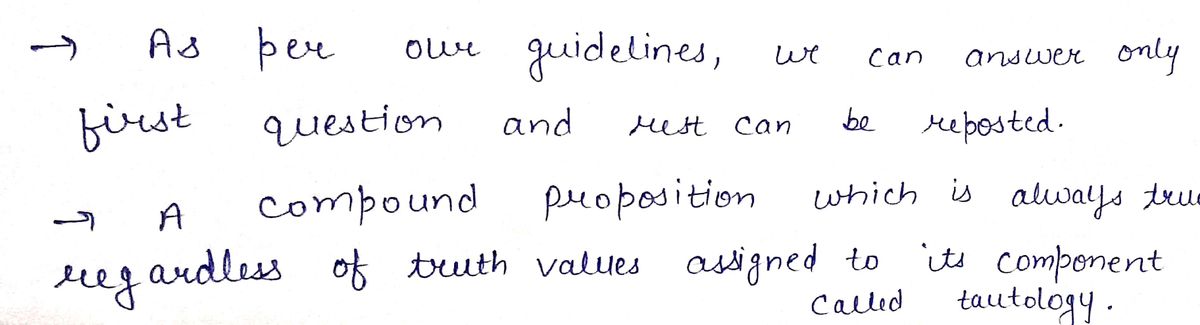 → As per our guidelines, we can answer only
first question and rest can be reposted.
→ A compound proposition which is always true
regardless of truth values assigned to its component
called tautology.